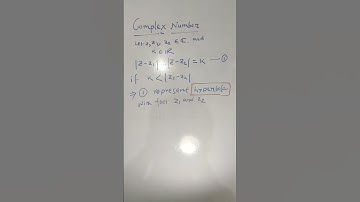 Complex Number
Let z, z₁, z₂ ∈ ℂ and
k ∈ ℝ
|z-z₁| - |z-z₂| = k — ①
if k < |z₁-z₂|
⇒ ① represent hyperbola
with foci z₁ and z₂